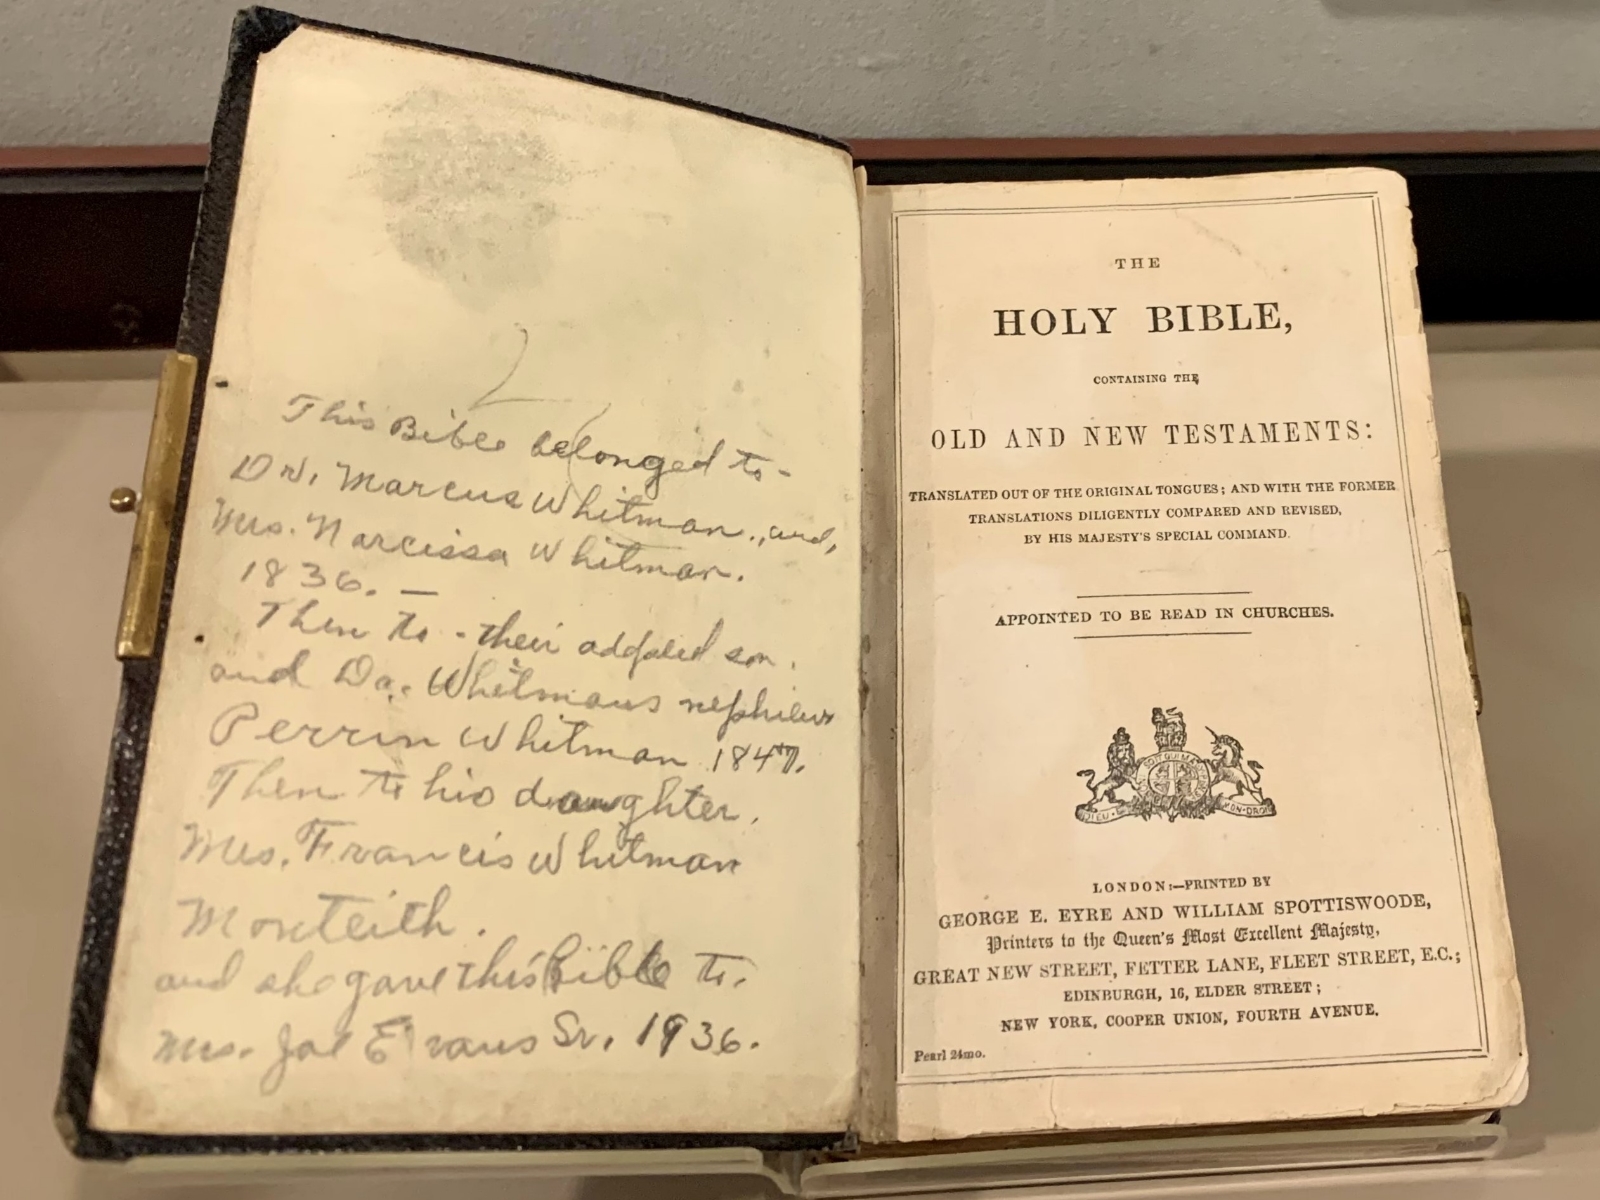 This Bible belonged to-
Dr. Marcus Whitman., and,
Mrs. Narcissa Whitman.
1836. —
Then to - their addopted son.
and Dr. Whitmans nephew
Perrin Whitman 1847.
Then to his daughter.
Mrs. Francis Whitman
Monteith.
and she gave this Bible to.
Mrs. Joe Evans Sr. 1936.
THE
HOLY BIBLE,
CONTAINING THE
OLD AND NEW TESTAMENTS:
TRANSLATED OUT OF THE ORIGINAL TONGUES; AND WITH THE FORMER
TRANSLATIONS DILIGENTLY COMPARED AND REVISED,
BY HIS MAJESTY'S SPECIAL COMMAND.
APPOINTED TO BE READ IN CHURCHES.
DIEU MON DROIT
LONDON:—PRINTED BY
GEORGE E. EYRE AND WILLIAM SPOTTISWOODE,
Printers to the Queen's Most Excellent Majesty,
GREAT NEW STREET, FETTER LANE, FLEET STREET, E.C.;
EDINBURGH, 16, ELDER STREET;
NEW YORK, COOPER UNION, FOURTH AVENUE.
Pearl 24mo.